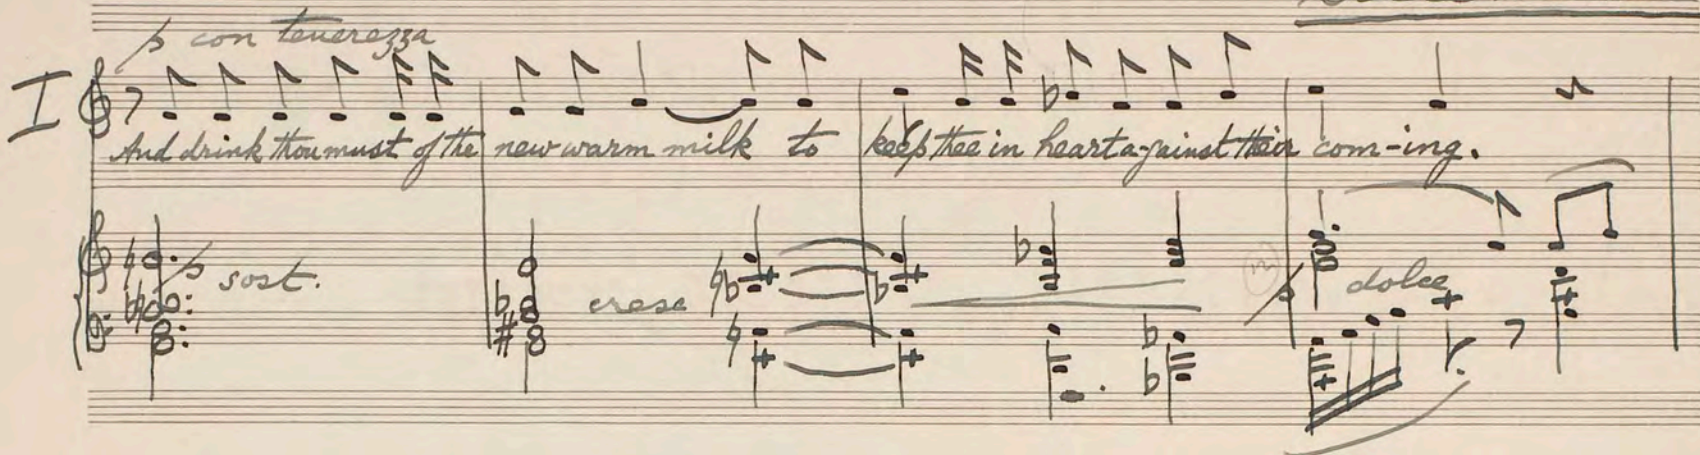 p con tenerezza
I
And drink thou must of the new warm milk to keep thee in heart a-gainst their com-ing.
p sost. cresc p dolce